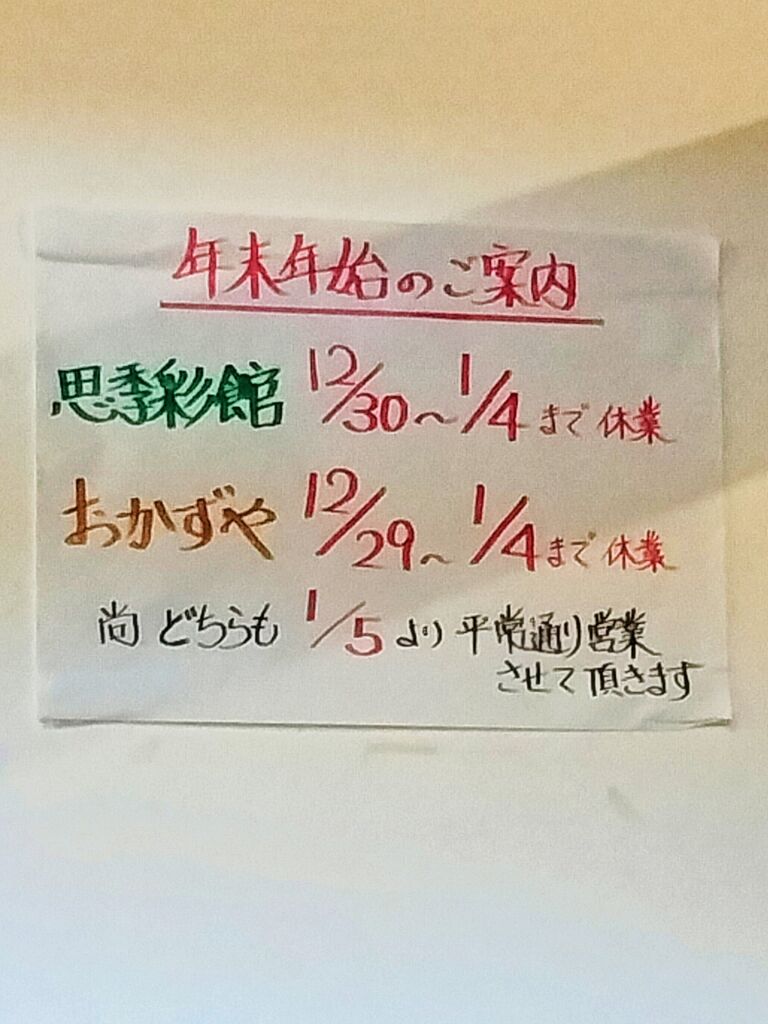 年末年始のご案内
思季彩館 12/30〜1/4まで休業
おかずや 12/29〜1/4まで休業
尚 どちらも 1/5より平常通り営業
させて頂きます